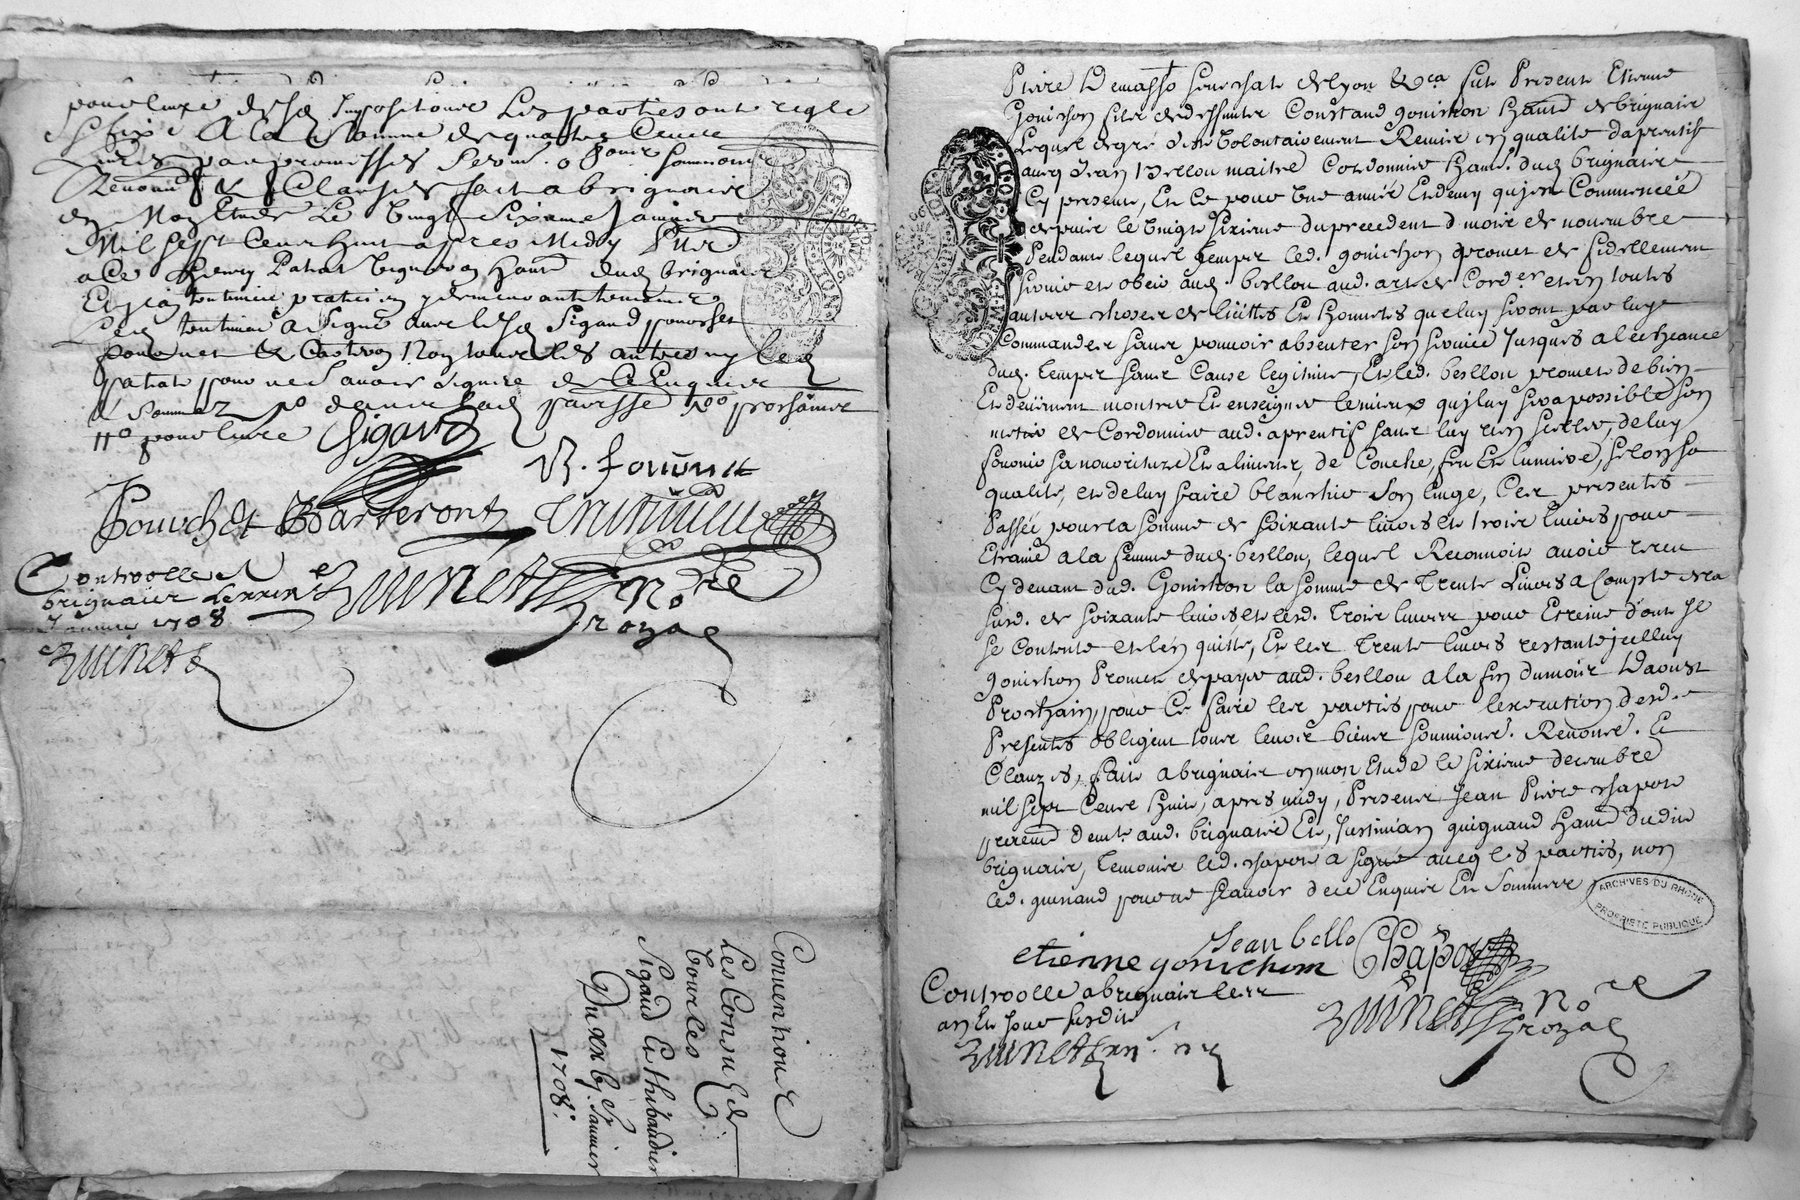 pour livre desd. Impositions Les parties ont regle
et fixé A la somme de quattre Cens
Livres par promesses serm. o soumissions
Renon. & Clauses fait a brignaix
en Mon Etude Le Vingt Sixieme Janvier
Mil Sept Cens huit apres Midy Pnt.
a ce henry Patat Vigneron habt. dud. brignaix
Et Jean
Led. a Signé avec lesd. Sigaud pourchet
fournet & Basteron Non tous les autres ny led.
patat pour ne scavoir signer de ce Enquis
& sommez
Sigaud
fournet
Pourchet Basteront
Controollé a
brignaix Le xxvie
Janvier 1708
No.re
Royal
Convention
Les Consulz de
Vourles
Sigaud Et thibaudier
Du xxvj.e Janvier
1708.
Pardt. Senechal de Lyon &ca fut Present Etienne
Gonichon fils de deffunt Constand gonichon habt. de brignaix
Lequel de gré s'est Volontairement Remis en qualité daprentif
avecq Jean Bellou maitre Cordonnier habt. dud. brignaix
Cy present, Et ce pour Une année Et demy qu'jont Commencée
depuis le Vingt Sixieme du precedent mois de novembre
Pendant lequel temps led. gonichon promet de fidellement
servir et obeir aud. bellou aud. art de Cordr. et en toutes
autres choses de licittes Et honnetes que luy seront par luy
Commandées sans pouvoir absenter son service Jusques a lecheance
dud. temps sans Cause legitime, Et led. bellou promet de bien
Et deüement montrer Et enseigner le mieux qu'jl luy sera possible son
metier de Cordonnier aud. aprentif sans luy rien Celler, de luy
fournir sa nourriture Et alimens, de Couche, feu Et lumiere, selon sa
qualité, et de luy faire blanchir son linge, Ces presentes
Passées pour la somme de soixante livres et trois livres pour
Etraine a la femme dud. bellou, lequel Reconnoit avoir receu
Cy devant dud. Gonichon la somme de Trente Livres a Compte de la
susd. de soixante livres et lesd. Trois livres pour Etreine dont Jl
se Contente et l'en quitte, Et les Trente livres restante jcelluy
gonichon Promet de payer aud. bellou a la fin du mois Daoust
Prochain, pour Ce faire les parties pour lexecution desd.
Presentes obligent tous leurs biens soumions. Renons. Et
Clauzes, fait a brignaix en mon Etude le sixieme decembre
mil sept Cens huit, apres midy, Presens Jean Pierre chapot
demt. aud. brignaix Et, Justinian guignand habt. dudit
brignaix, temoins led. chapot a signé avecq les parties, non
led. guinand pour ne scavoir de ce Enquis Et Sommez
ARCHIVES DU RHONE
PROPRIETE PUBLIQUE
Jean bello
etienne gonichom
Chapot
Controollé a brignaix les
an Et Jour susdits
No.re
Royal